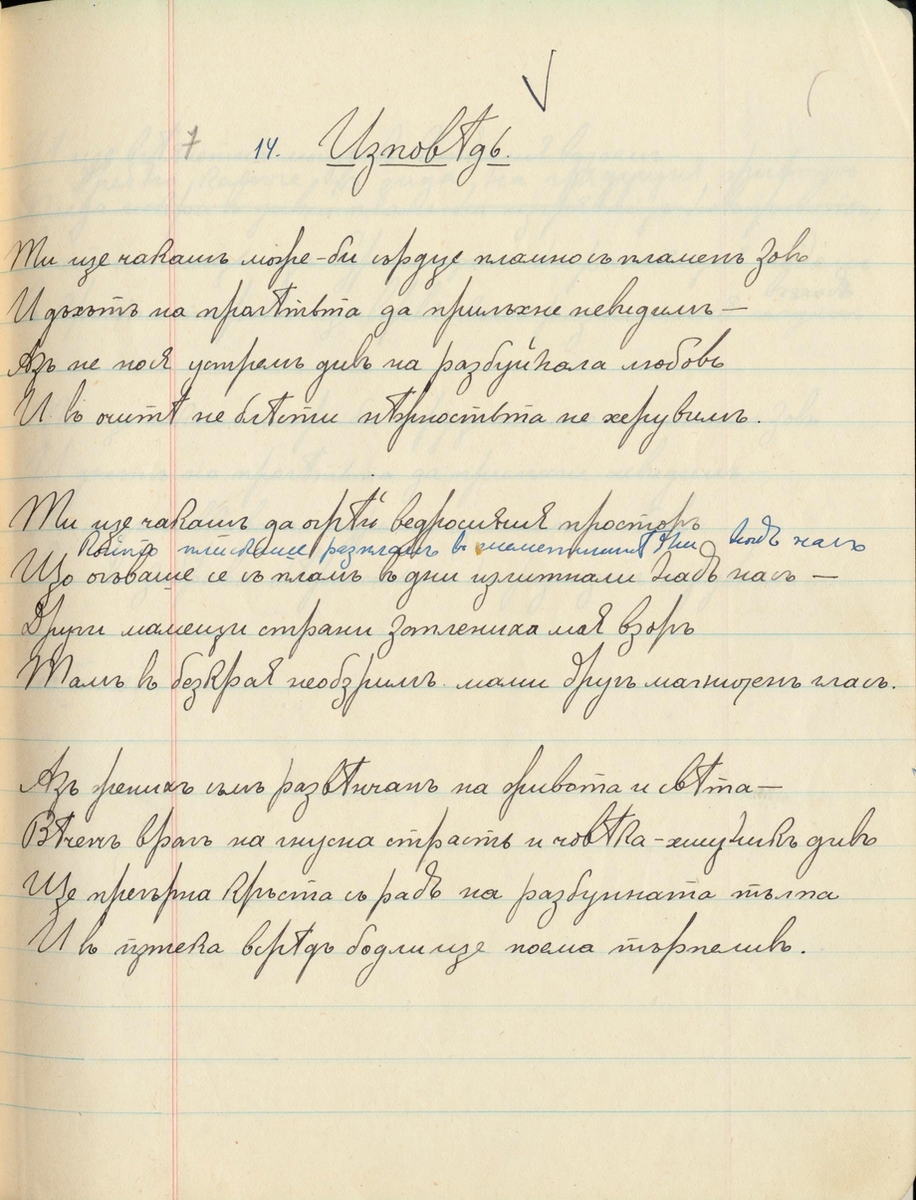 7 14. Изповѣдь.
Ти ще чакашъ може-би сърдце пламно съ пламенъ зовъ
И дъхътъ на пролѣтьта да прилъхне невидимъ —
Азъ не нося устремъ дивъ на разбуйнала любовь
И въ очитѣ не блѣсти нѣжностьта на херувимъ.
Ти ще чакашъ да огрѣй ведросиния просторъ
Който
дни надъ насъ
Що огъваше се съ пламъ въ дни излитнали надъ насъ —
Други мамещи страни заплениха моя взоръ
Тамъ въ безкрая необзримъ мами другъ магнитенъ гласъ.
Азъ женихъ съмъ развѣнчанъ на живота и свѣта —
Вѣченъ врагъ на гнусна страсть и човѣка-хищникъ дивъ
Ще прегърна кръста съ радъ на разбунната тълпа
И въ пътека всрѣдъ бодли ще поема търпеливъ.